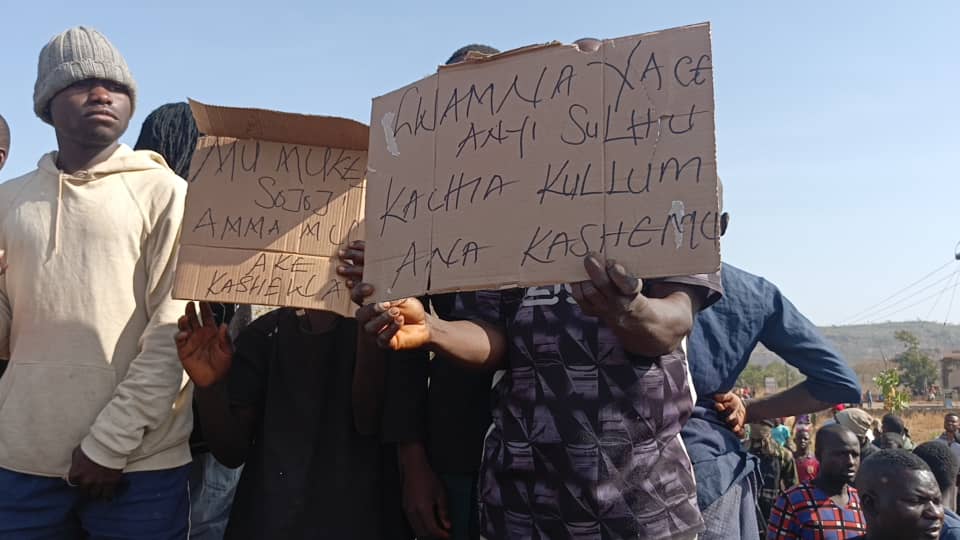 MU MUKE
SOJOJ
AMMA MU
AKE
KASHEWA
GWAMNA YACE
AYI SULHU
KACHIA KULLUM
ANA KASHEMU